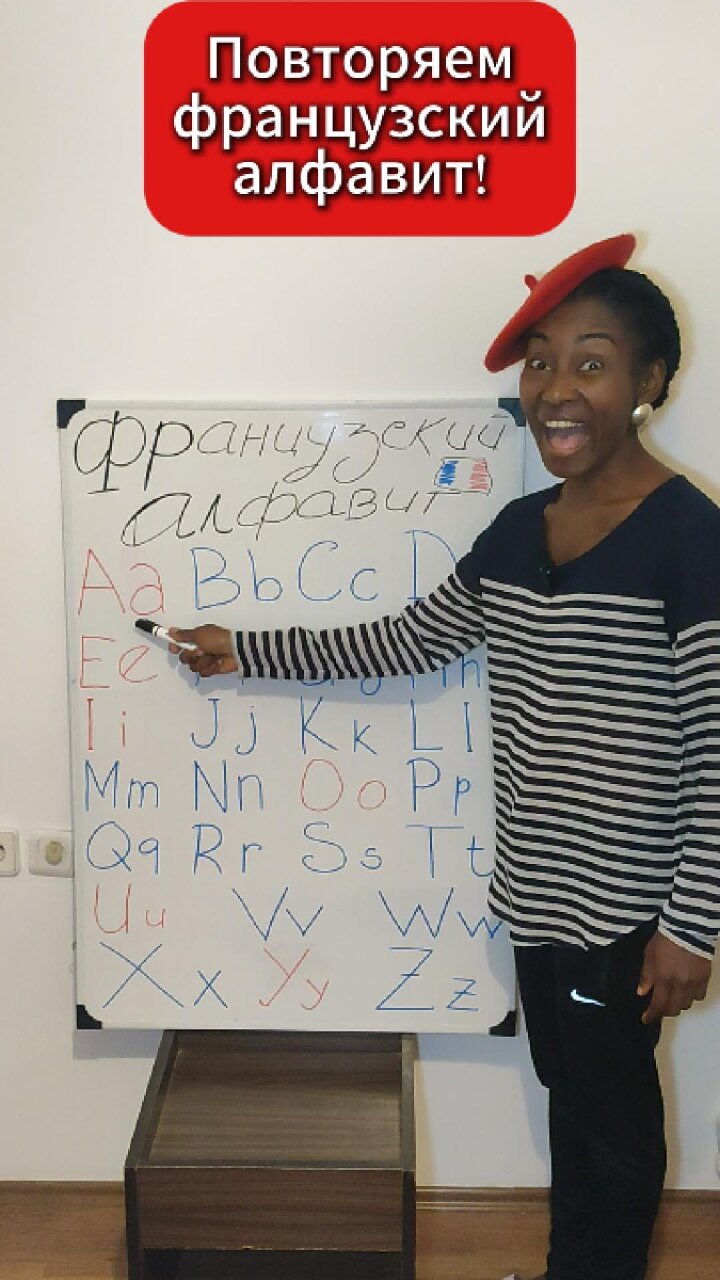 Повторяем
французский
алфавит!
Французский
алфавит
Aa Bb Cc D
Ee
Ii Jj Kk Ll
Mm Nn Oo Pp
Qq Rr Ss Tt
Uu Vv Ww
Xx Yy Zz